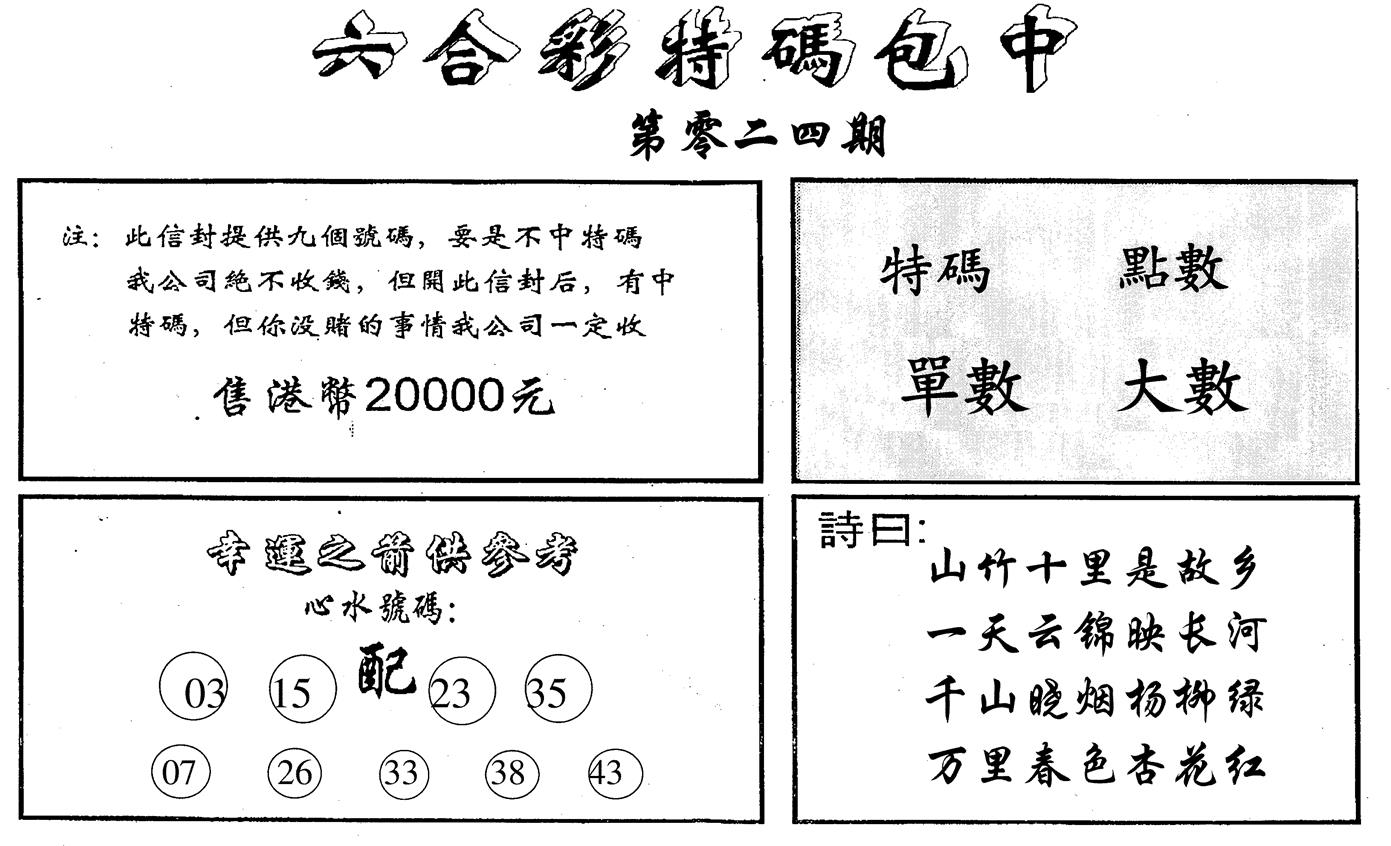 六合彩特碼包中
第零二四期
注：此信封提供九個號碼，要是不中特碼
我公司絕不收錢，但開此信封后，有中
特碼，但你没賭的事情我公司一定收
售港幣20000元
特碼 點數
單數 大數
幸運之箭供參考
心水號碼：
03 15 配 23 35
07 26 33 38 43
詩曰：
山竹十里是故乡
一天云锦映长河
千山晓烟杨柳绿
万里春色杏花红